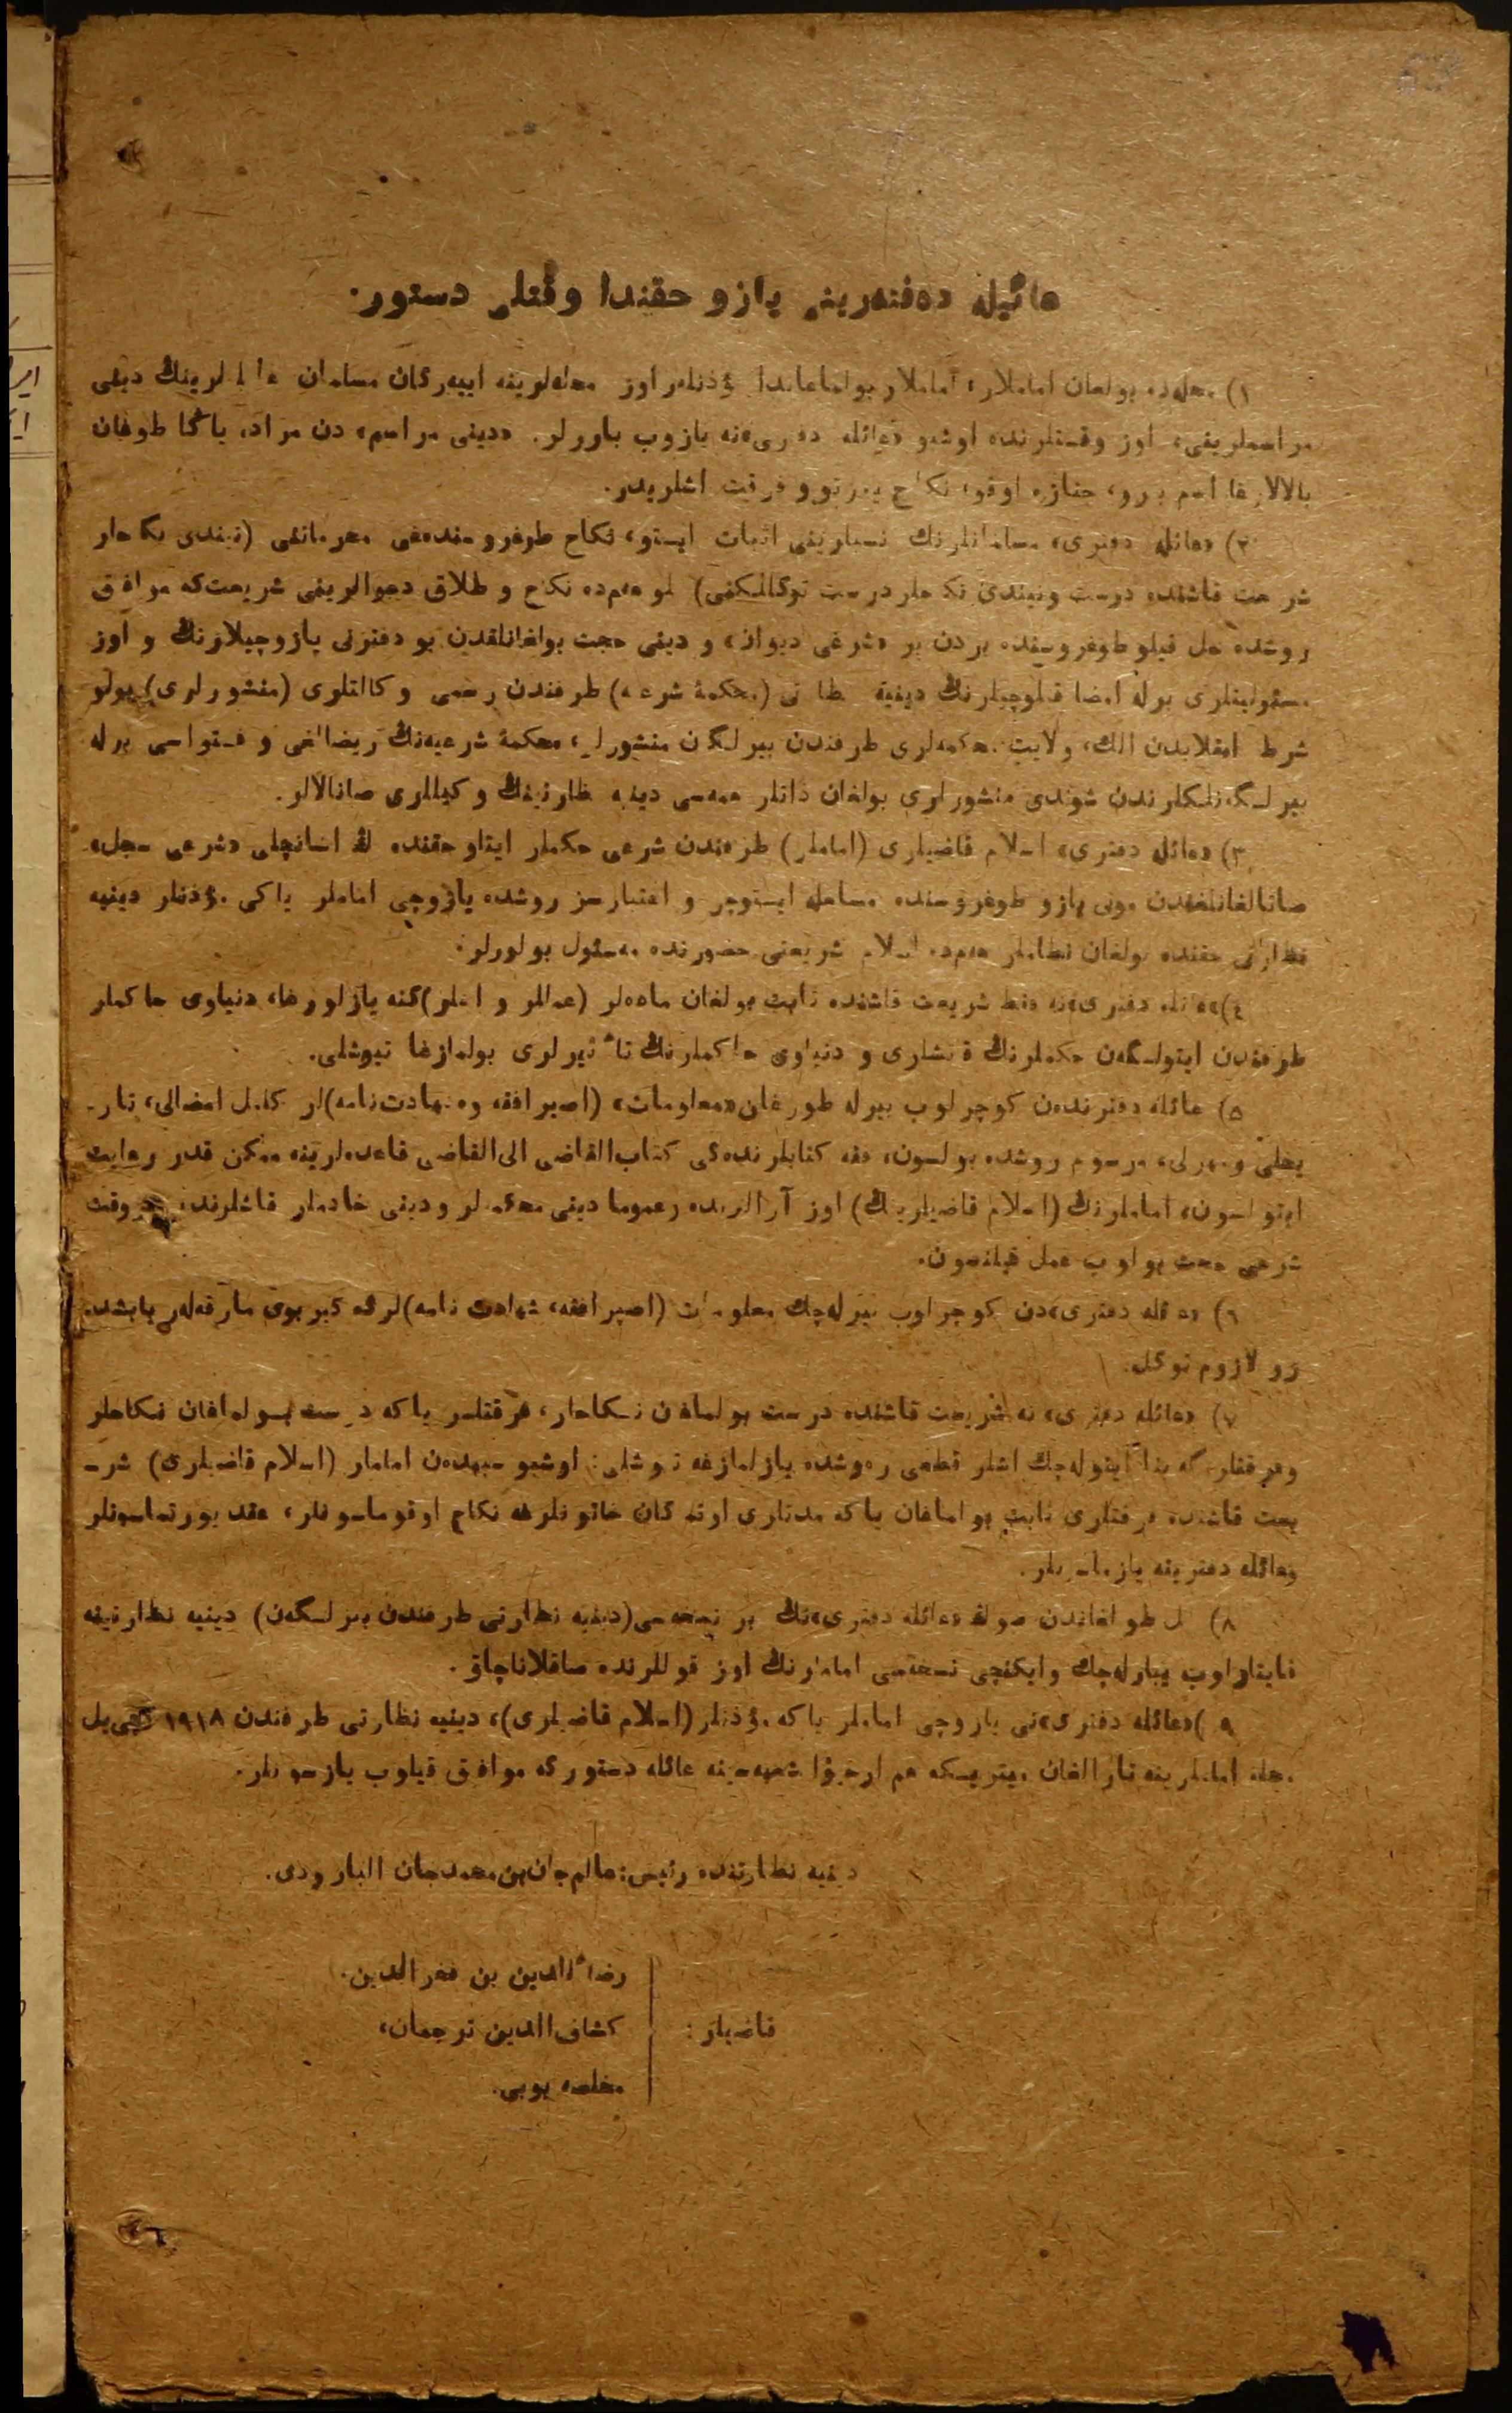 عائیله دەفتەرینی یازو حقندا وقتلی دستور.
۱) محله‌ده بولغان اماملار، اماملار بولماغاندا مؤذنلەر اوز محله‌لرینه ایبەرگان مسلمان عائله‌لرینڭ دینی
مراسملرینی، اوز وقتلرنده اوشبو «عائله دفتری»نه یازوب بارورلر. «دینی مراسم» دن مراد، یاڭا طوغان
بالالارغا اسم بیرو، جنازه اوقو، نکاح یورتو و فرقت اشلریدر.
۲) «عائله دفتری» مسلمانلرنڭ نسبلرینی اثبات ایتو، نکاح طوغروسنده‌غی محرماتنی (نیندی نکاحلر
شریعت قاشنده درست ونیندی نکاحلر درست توگللکنی) بلو هم‌ده نکاح و طلاق دعوالرینی شریعت‌که موافق
روشده حل قیلو طوغروسنده بردن بر «شرعی دیوان» و دینی حجت بولغانلقدن بو دفترنی یازوچیلارنڭ و اوز
مسئولیتلری برله امضا قیلوچیلرنڭ دینیه نظارتی (محکمهٔ شرعیه) طرفندن رسمی وکالتلری (منشورلری) بولو
شرط انقلابدن الك، ولایت محکمه‌لری طرفندن بیرلگن منشورلر، محکمهٔ شرعیه‌نڭ ریضالغی و فتواسی برله
بیرلگەنلکلرندن شوندی منشورلری بولغان ذاتلر همەسی دینیه نظارتینڭ وکیللری صانالالر.
۳) «عائله دفتری» اسلام قاضیلری (اماملر) طرفندن شرعی حکملر ایتلو حقنده اڭ اشانچلی «شرعی سجل»
صانالغانلغندن مونی یازو طوغروسنده مساهله ایتوچی و اعتبارسز روشده یازوچی اماملر یاکی مؤذنلر دینیه
نظارتی حقنده بولغان نظاملر هم‌ده اسلام شریعتی حضورنده مسئول بولورلر.
٤) «عائله دفتری»نه فقط شریعت قاشنده ثابت بولغان ماده‌لر (عمللر و اشلر)گنه یازلورغا، دنیاوی حاکملر
طرفندن ایتولگەن حکملرنڭ قاتشلری و دنیاوی حاکملرنڭ تأثیرلری بولمازغا تیوشلی.
٥) عائله دفترندەن کوچرلوب بیرله طورغان «معلومات» (اصپرافقه وشهادت‌نامه)لر کامل امضالی، تار-
یخلی ومهرلی، مرسوم روشده بولسون، فقه کتابلرنده‌گی کتاب‌القاضی الی‌القاضی قاعده‌لرینه ممکن قدر رعایت
ایتولسون، اماملرنڭ (اسلام قاضیلرینڭ) اوز آرالرنده وعموما دینی محکمه‌لر ودینی خادملر قاشلرنده وقت
شرعی حجت بولوب عمل قیلنسون.
٦) «عائله دفتری»دن کوچرلوب بیرله‌چك معلومات (اصپرافقه، شهادت نامه)لرگه گیربوی مارقه‌لەر یابشد-
رو لازوم توگل.
۷) «عائله دفتری» نه شریعت قاشنده درست بولماغان نکاحلر، فرقتلر یاکه درست بولماغان نکاحلر
وفرقتلرگه بنا ایتوله‌چك اشلر قطعی ره‌وشده یازلمازغه تیوشلی: اوشبو سببدەن اماملر (اسلام قاضیلری) شر-
یعت قاشنده فرقتلری ثابت بولماغان یاکه مدتلری اوتمه‌گان خاتونلرغه نکاح اوقوماسونلر، عقد یورتماسونلر
وعائله دفترینه یازماسونلر.
۸) یل طولغاندن صوڭ «عائله دفتری»نڭ بر نسخەسی (دینیه نظارتی طرفندن بیرلگەن) دینیه نظارتینه
قایتارلوب یبارله‌چك وایکنچی نسخەسی اماملرنڭ اوز قوللرنده صاقلاناچاق.
۹) «عائله دفتری»نی یازوچی اماملر یاکه مؤذنلر (اسلام قاضیلری)، دینیه نظارتی طرفندن ۱۹۱۸ نچی یل
محله اماملرینه تارالغان میتریسکه هم ارخیوا شعبەسینه عائله دستورگه موافق قیلوب یازسونلر.
دینیه نظارتنده رئیس: عالم‌جان بن محمدجان البارودی.
قاضیلر:
رضاءالدین بن فخرالدین.
کشاف‌الدین ترجمان،
مخلصه بوبی.